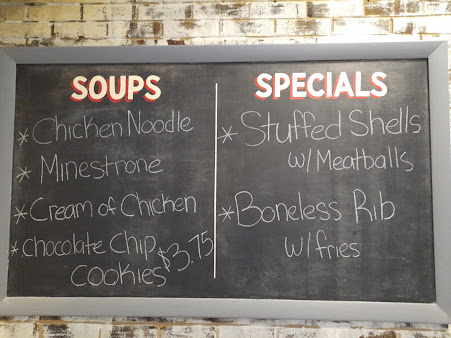 SOUPS
* Chicken Noodle
* Minestrone
* Cream of Chicken
* Chocolate Chip $3.75
Cookies
SPECIALS
* Stuffed Shells
w/ Meatballs
* Boneless Rib
w/ fries